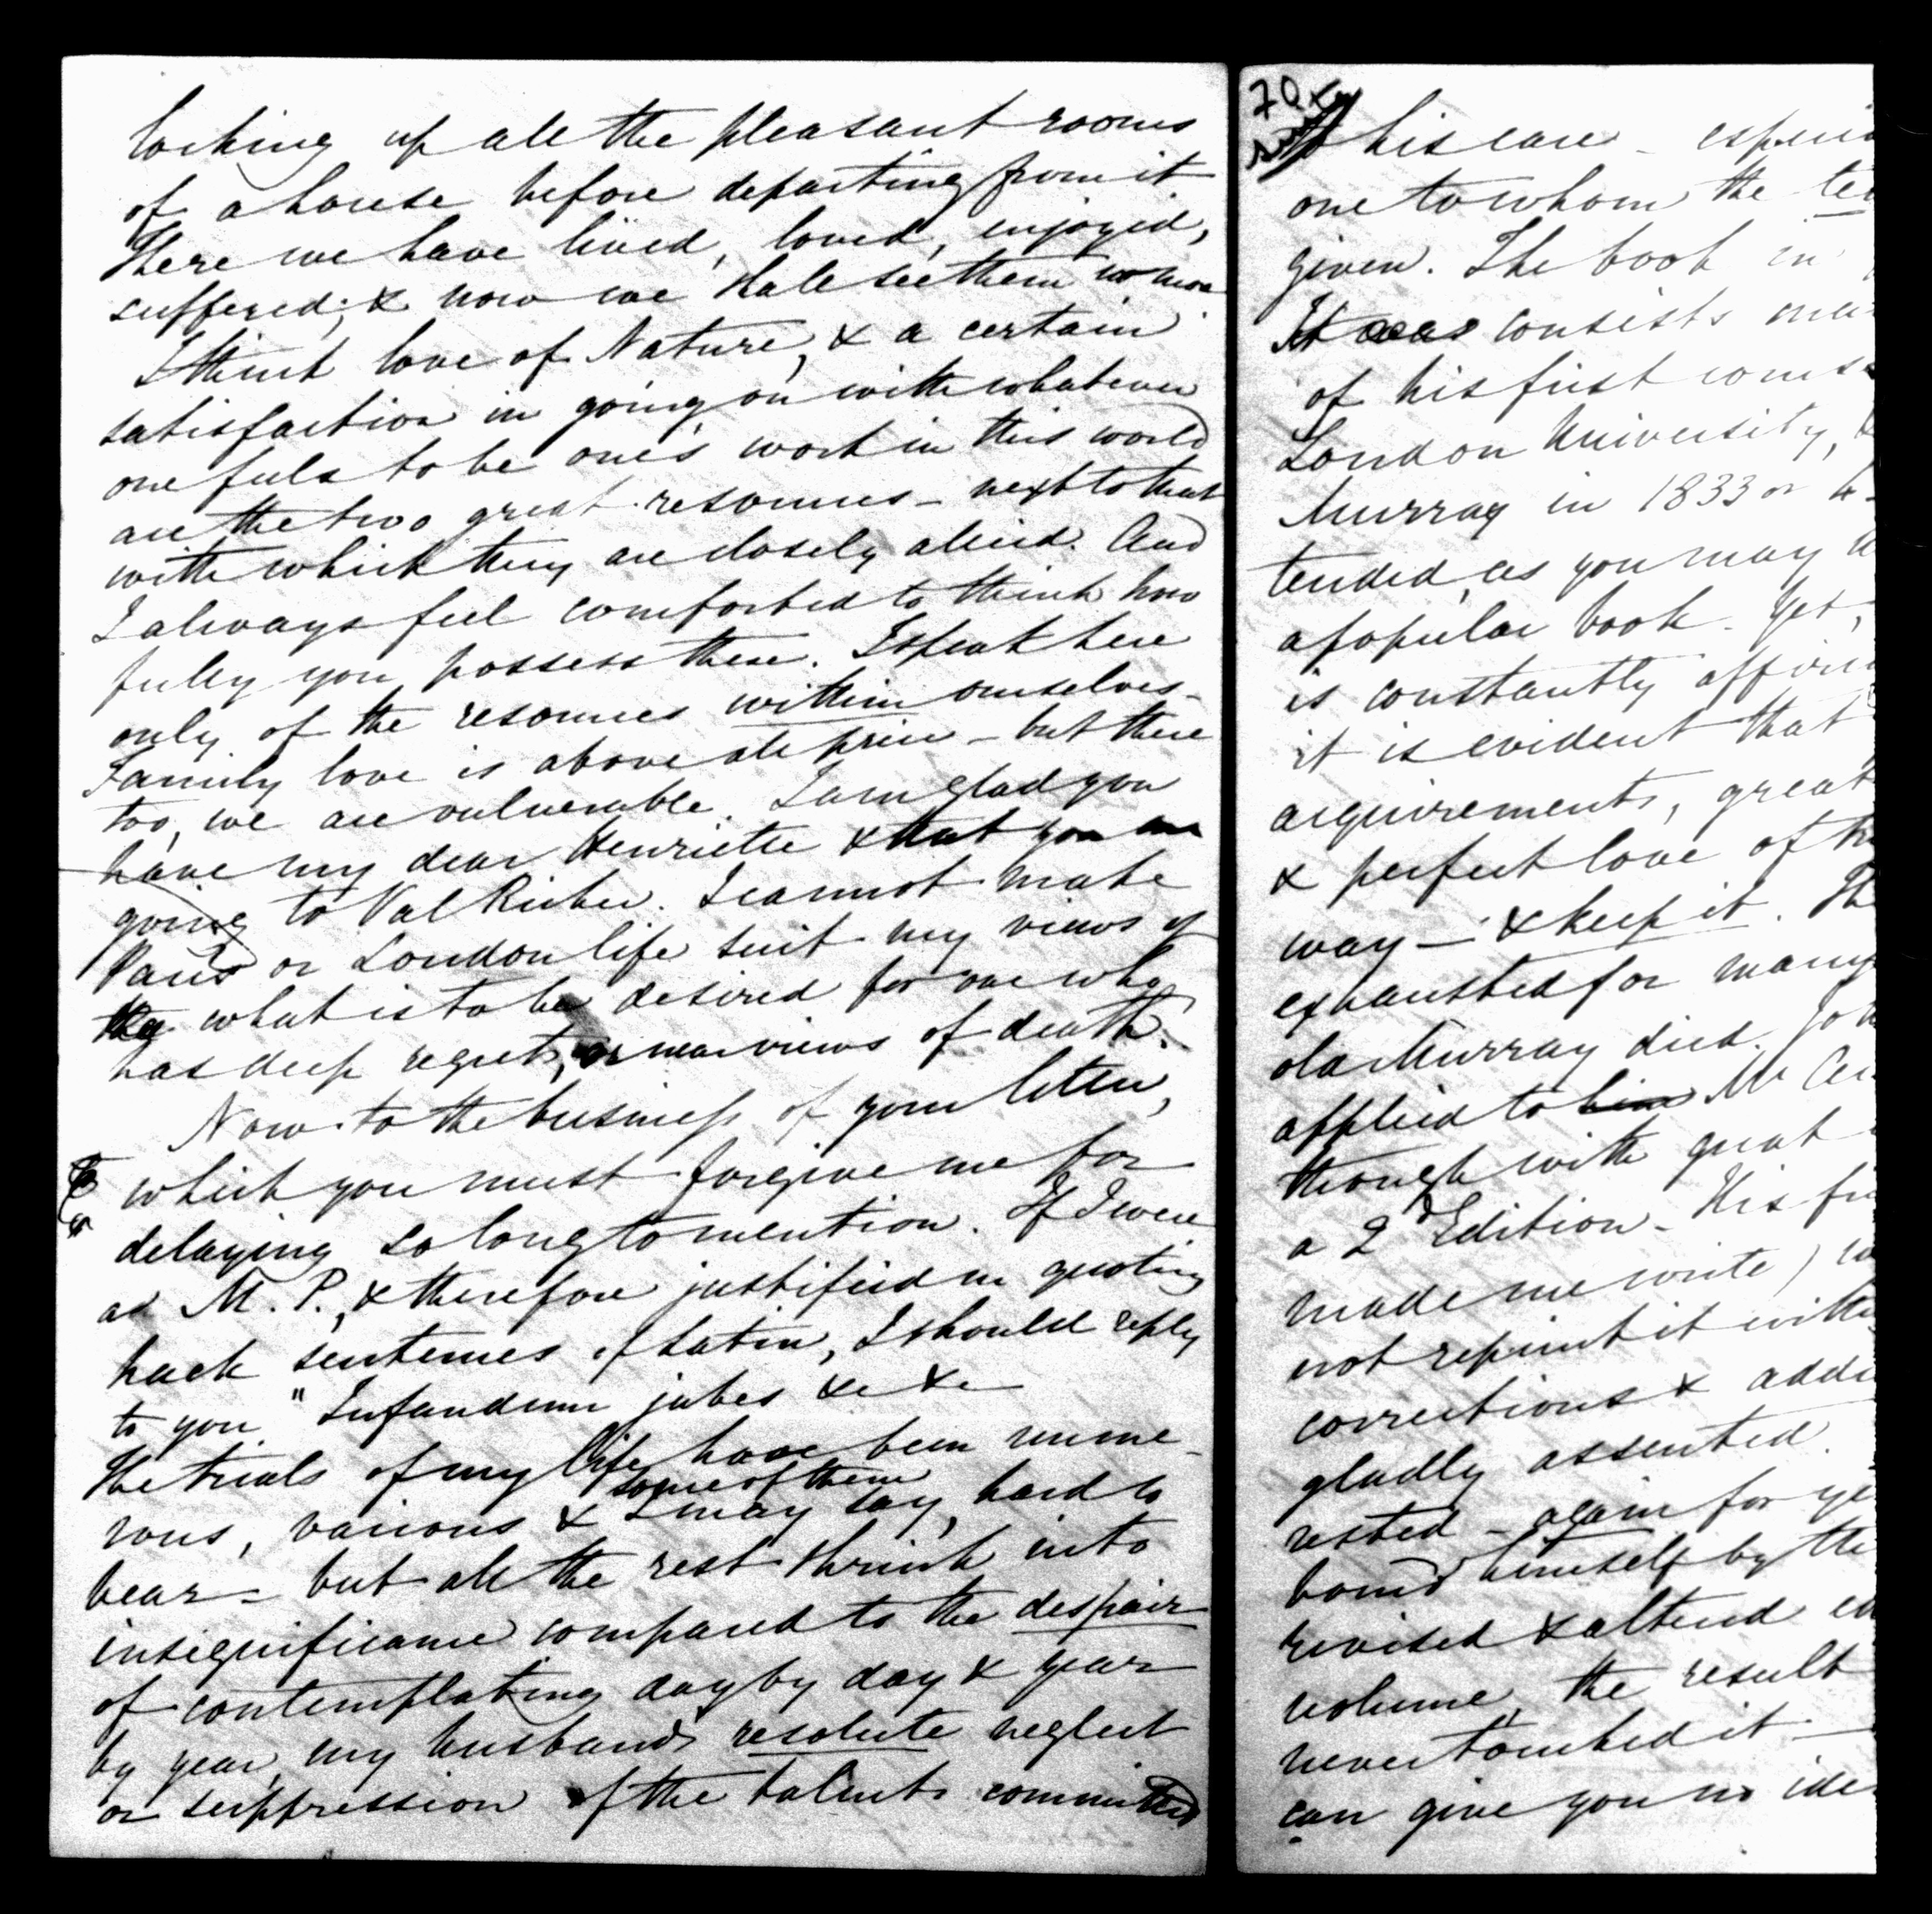 locking up all the pleasant rooms
of a house before departing from it.
There we have lived, loved, enjoyed,
suffered; & now we shall see them no more.
I think love of Nature, & a certain
satisfaction in going on with whatever
one feels to be one's work in this world
are the two great resources – next to that
with which they are closely allied. And
I always feel comforted to think how
fully you possess these. I speak here
only of the resources within ourselves –
Family love is above all price – but there
too, we are vulnerable. I am glad you
have my dear Henriette & that you are
going to Val Richer. I cannot make
Paris or London life suit my views of
what is to be desired for one who
has deep regrets, or near views of death.
Now to the business of your letter,
which you must forgive me for
delaying so long to mention. If I were
an M. P., & therefore justified in quoting
hack sentences of Latin, I should reply
to you "Infandum jubes &c &c
The trials of my life have been nume-
some of them
rous, various & I may say, hard to
bear – but all the rest shrink into
insignificance compared to the despair
of contemplating day by day & year
by year, my husband's resolute neglect
or suppression of the talents committed
70
to his care – especi
one to whom the te
given. The book in
It was consists ma
of his first course
London University, &
Murray in 1833 or 4 –
tended, as you may
a popular book – Yet,
is constantly affir
it is evident that
acquirements, great
& perfect love of tr
way – & keep it. Th
exhausted for many
old Murray died. Joh
applied to him Mr Au
though with great
a 2d Edition – His fir
made me write) w
not reprint it witho
corrections & addi
gladly assented.
rested – again for ye
bound himself by the
revised & altered e
volume, the result
never touched it –
can give you no ide